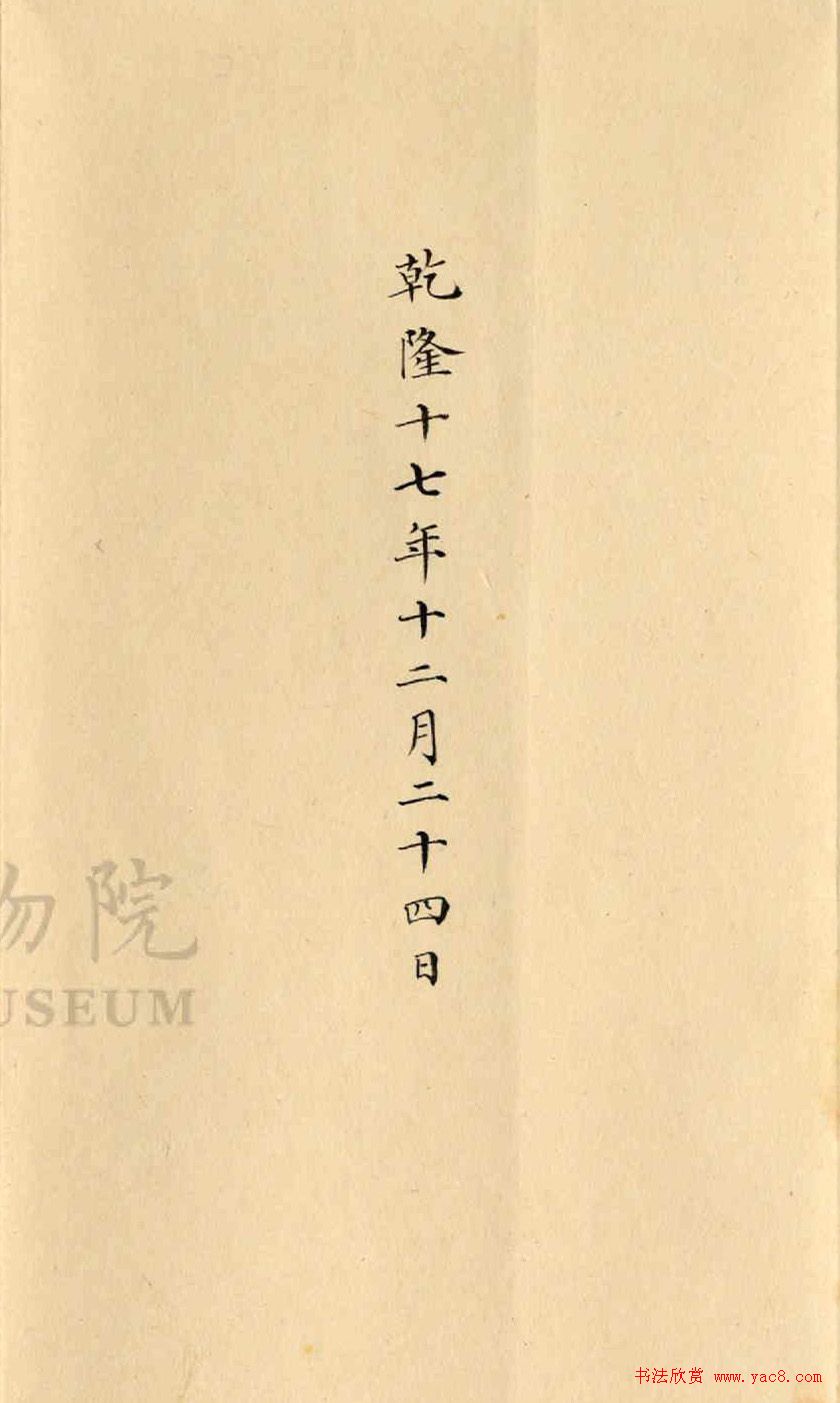 乾隆十七年十二月二十四日
物院
USEUM
书法欣赏 www.yac8.com